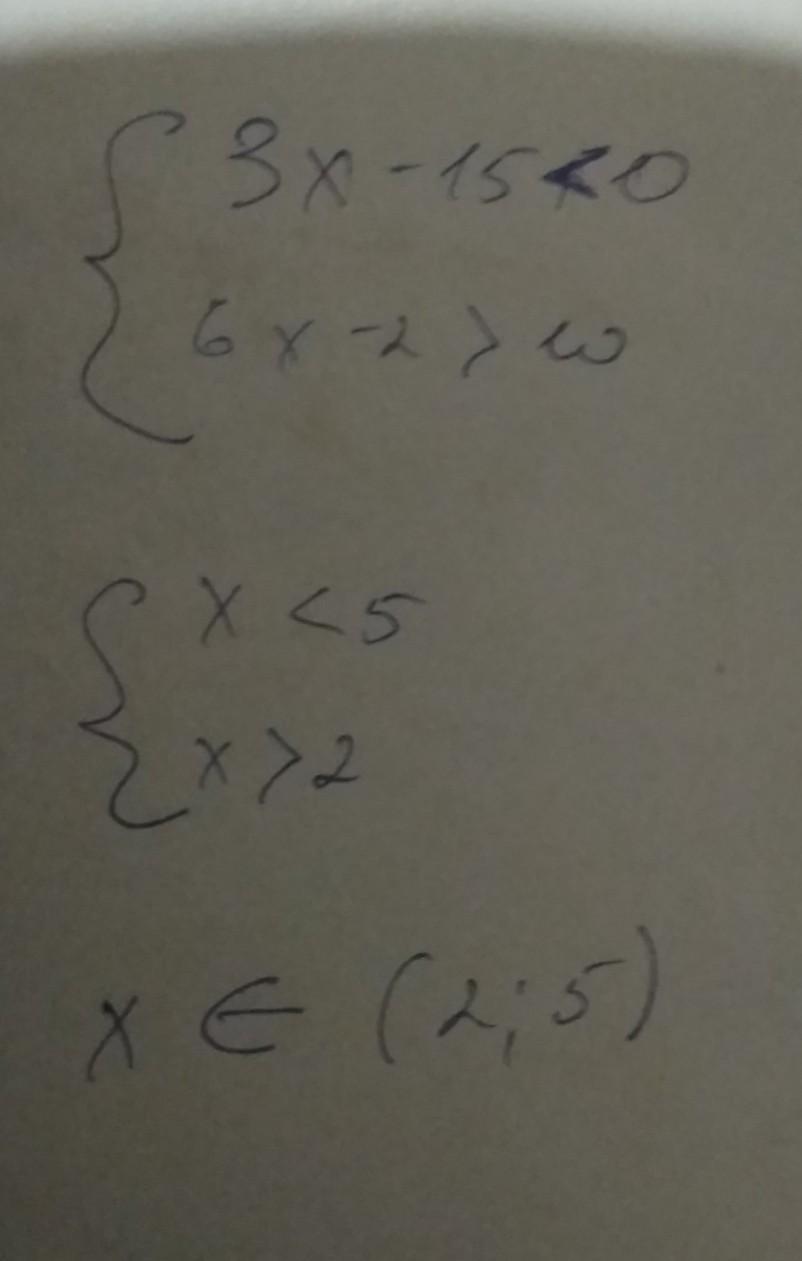 3x-15<0
6x-2>10
x<5
x>2
x∈(2;5)